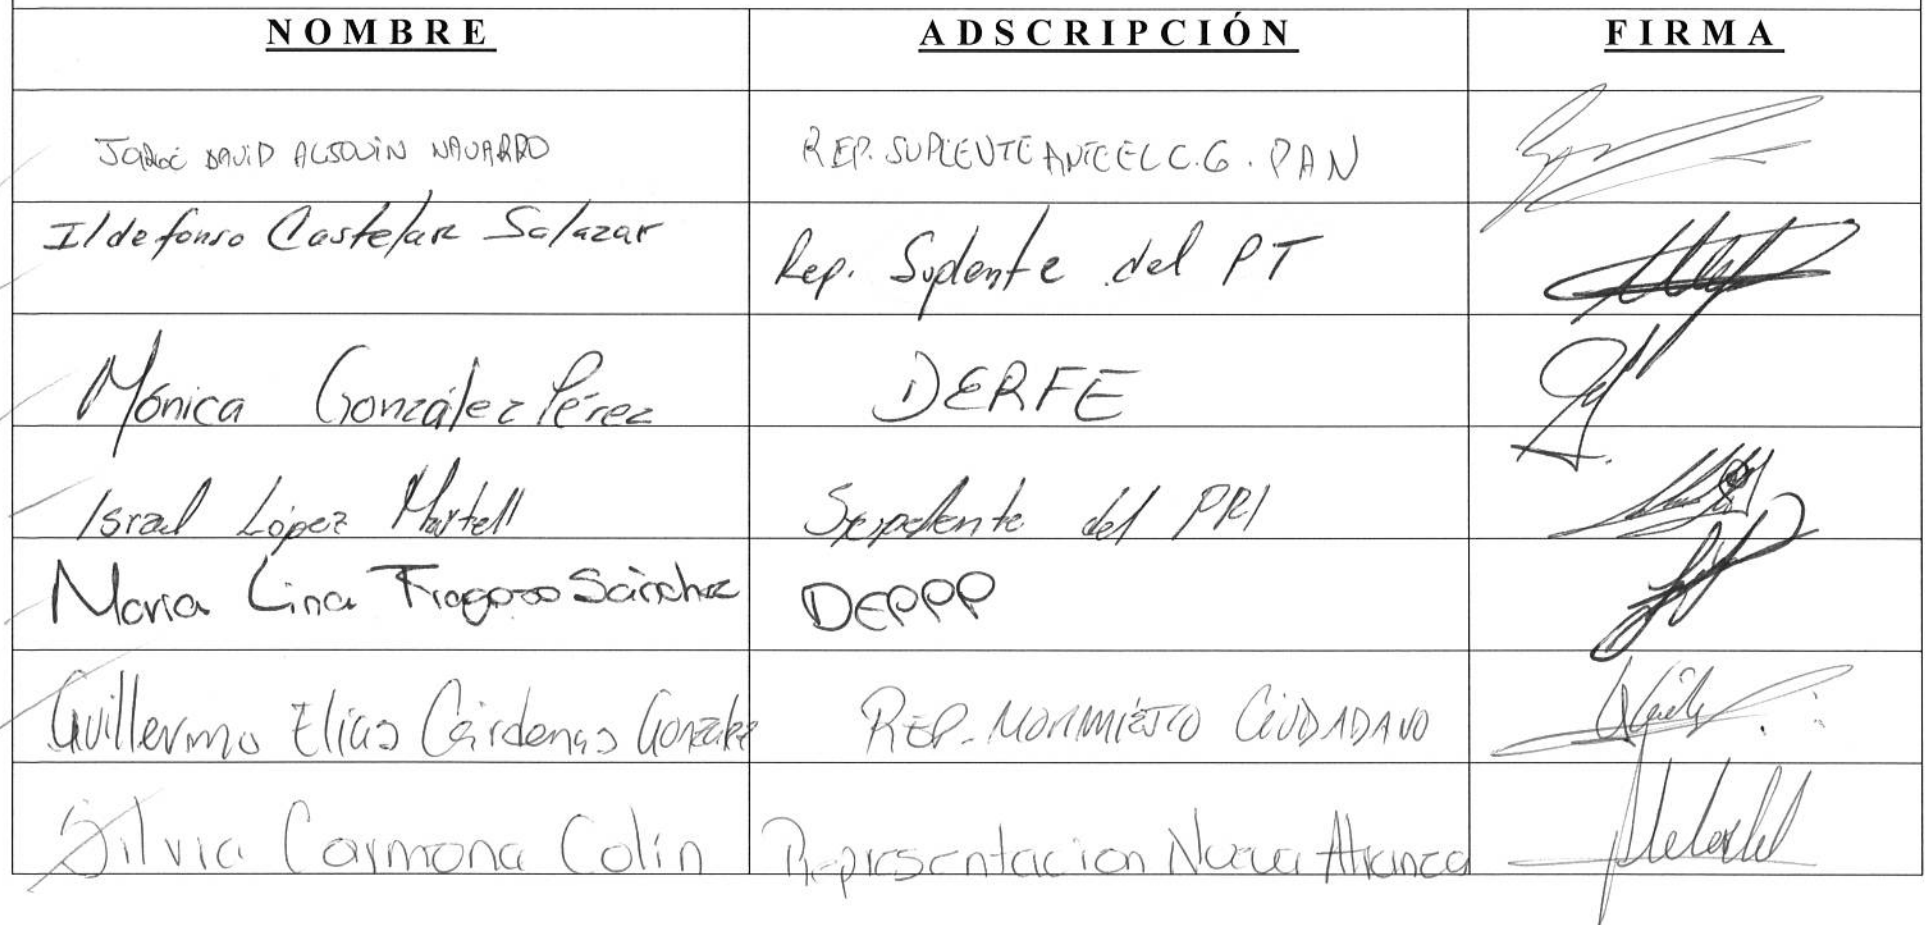 NOMBRE ADSCRIPCIÓN FIRMA
JORGE DAVID ALJOVÍN NAVARRO REP. SUPLENTE ANTE EL C.G. PAN
Ildefonso Castelar Salazar Rep. Suplente del PT
Mónica González Pérez DERFE
Israel López Martell del PRI
María Lina Fragoso Sánchez DEPPP
Guillermo Elías Cárdenas González REP. MOVIMIENTO CIUDADANO
Silvia Carmona Colín Representación Nueva Alianza